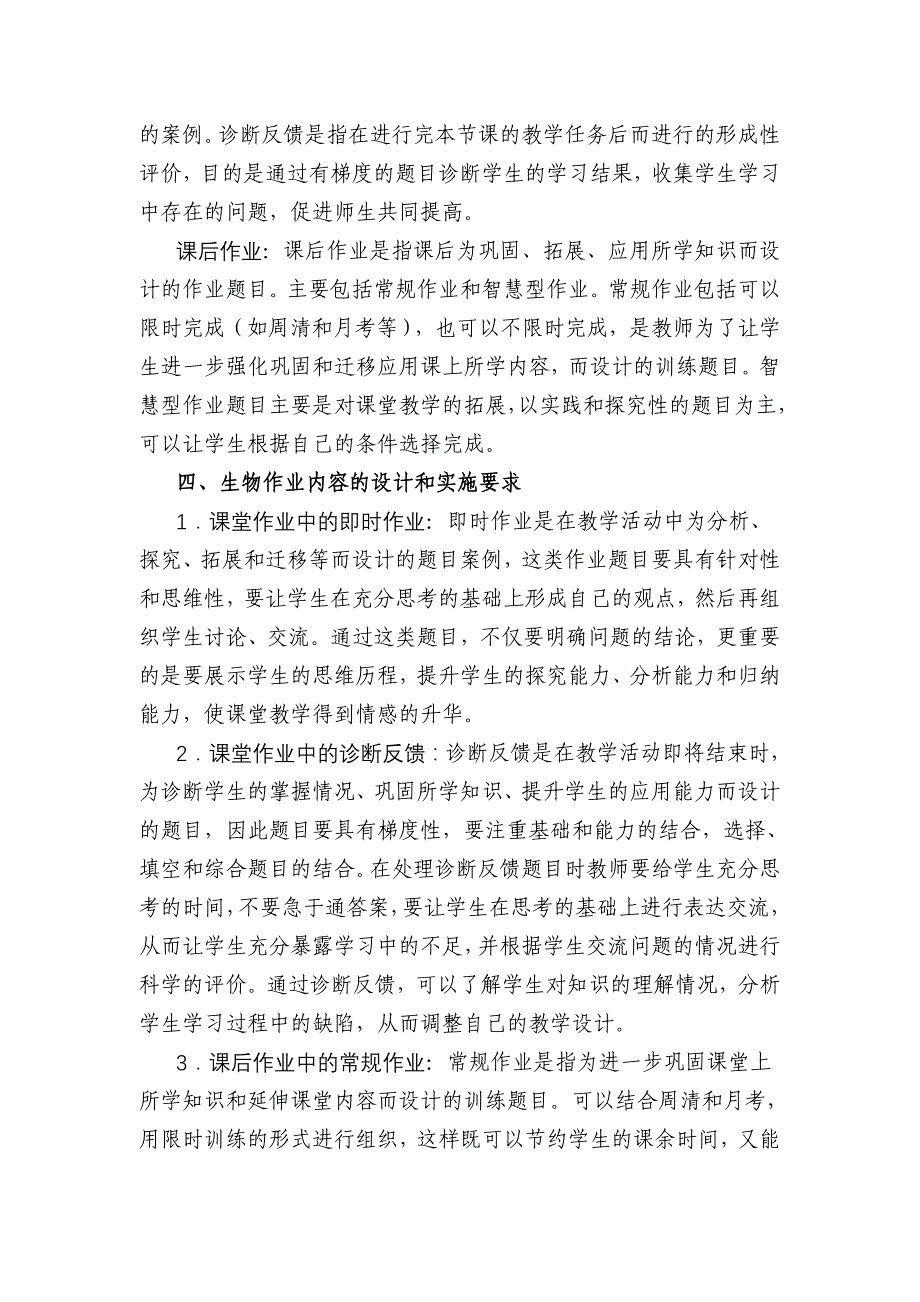 的案例。诊断反馈是指在进行完本节课的教学任务后而进行的形成性
评价，目的是通过有梯度的题目诊断学生的学习结果，收集学生学习
中存在的问题，促进师生共同提高。
课后作业：课后作业是指课后为巩固、拓展、应用所学知识而设
计的作业题目。主要包括常规作业和智慧型作业。常规作业包括可以
限时完成（如周清和月考等），也可以不限时完成，是教师为了让学
生进一步强化巩固和迁移应用课上所学内容，而设计的训练题目。智
慧型作业题目主要是对课堂教学的拓展，以实践和探究性的题目为主，
可以让学生根据自己的条件选择完成。
四、生物作业内容的设计和实施要求
1．课堂作业中的即时作业：即时作业是在教学活动中为分析、
探究、拓展和迁移等而设计的题目案例，这类作业题目要具有针对性
和思维性，要让学生在充分思考的基础上形成自己的观点，然后再组
织学生讨论、交流。通过这类题目，不仅要明确问题的结论，更重要
的是要展示学生的思维历程，提升学生的探究能力、分析能力和归纳
能力，使课堂教学得到情感的升华。
2．课堂作业中的诊断反馈：诊断反馈是在教学活动即将结束时，
为诊断学生的掌握情况、巩固所学知识、提升学生的应用能力而设计
的题目，因此题目要具有梯度性，要注重基础和能力的结合，选择、
填空和综合题目的结合。在处理诊断反馈题目时教师要给学生充分思
考的时间，不要急于通答案，要让学生在思考的基础上进行表达交流，
从而让学生充分暴露学习中的不足，并根据学生交流问题的情况进行
科学的评价。通过诊断反馈，可以了解学生对知识的理解情况，分析
学生学习过程中的缺陷，从而调整自己的教学设计。
3．课后作业中的常规作业：常规作业是指为进一步巩固课堂上
所学知识和延伸课堂内容而设计的训练题目。可以结合周清和月考，
用限时训练的形式进行组织，这样既可以节约学生的课余时间，又能